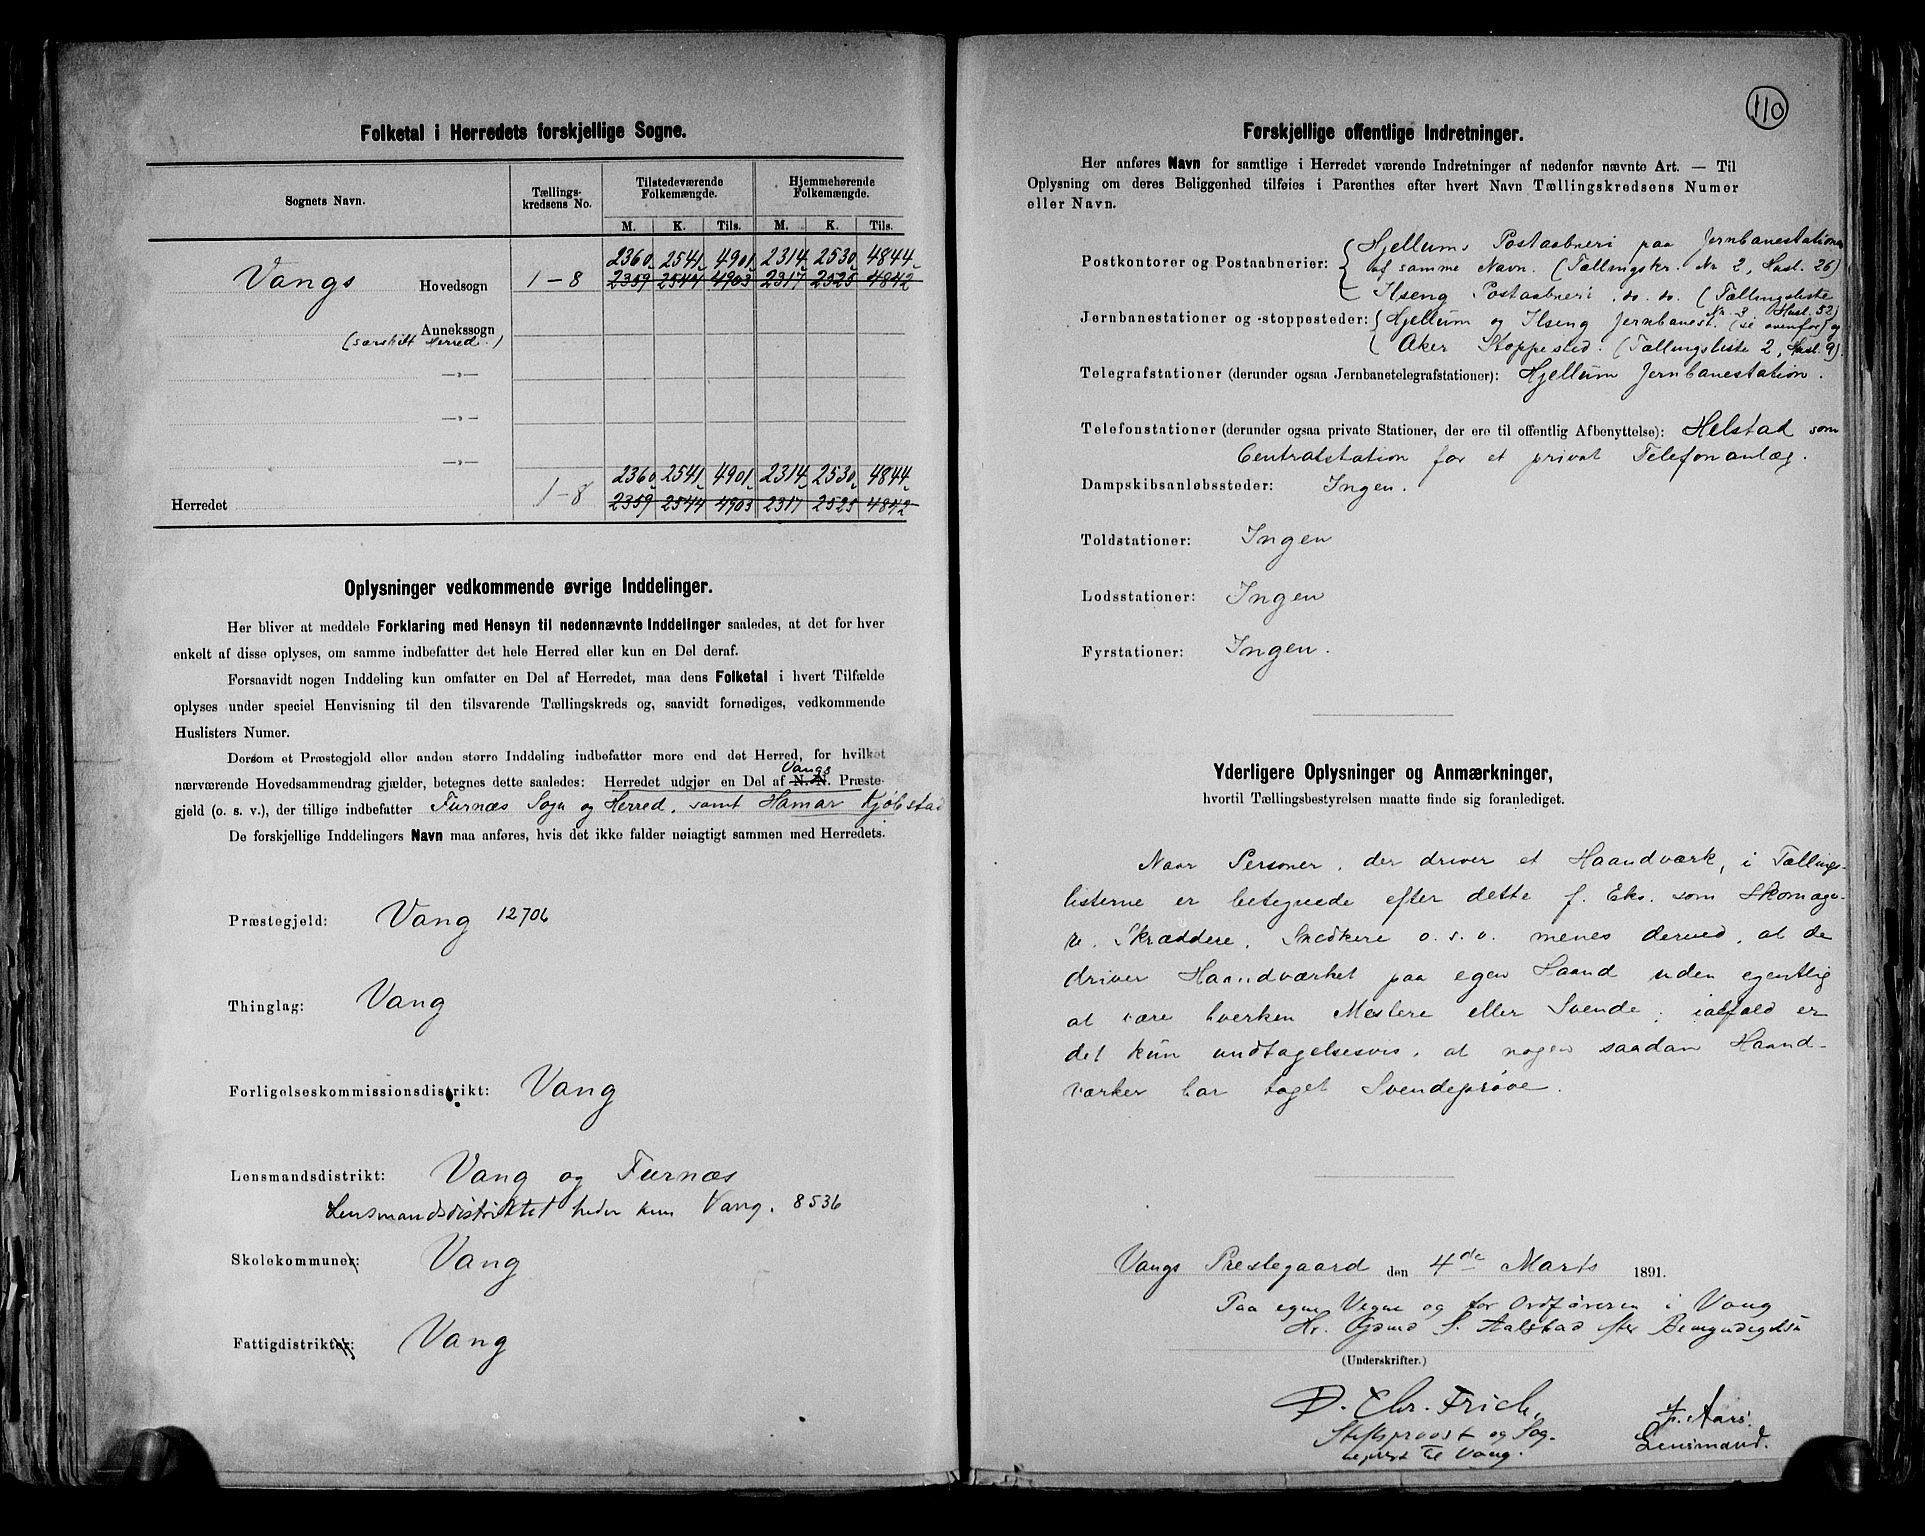 Folketal i Herredets forskjellige Sogne.
Sognets Navn.
Tællings-
kredsens No.
Tilstedeværende
Folkemængde.
Hjemmehørende
Folkemængde.
M. K. Tils. M. K. Tils.
2360 2541 4901 2314 2530 4844
Vangs Hovedsogn 1-8 2359 2544 4903 2317 2525 4842
Annekssogn
(særskilt Herred.)
—„—
—„—
—„—
2360 2541 4901 2314 2530 4844
Herredet 1-8 2359 2544 4903 2317 2525 4842
Oplysninger vedkommende øvrige Inddelinger.
Her bliver at meddele Forklaring med Hensyn til nedennævnte Inddelinger saaledes, at det for hver
enkelt af disse oplyses, om samme indbefatter det hele Herred eller kun en Del deraf.
Forsaavidt nogen Inddeling kun omfatter en Del af Herredet, maa dens Folketal i hvert Tilfælde
oplyses under speciel Henvisning til den tilsvarende Tællingskreds og, saavidt fornødiges, vedkommende
Huslisters Numer.
Dersom et Præstegjeld eller anden større Inddeling indbefatter mere end det Herred, for hvilket
Vangs
nærværende Hovedsammendrag gjælder, betegnes dette saaledes: Herredet udgjør en Del af N. N. Præste-
gjeld (o. s. v.), der tillige indbefatter Furnæs Sogn og Herred, samt Hamar Kjøbstad
De forskjellige Inddelingers Navn maa anføres, hvis det ikke falder nøiagtigt sammen med Herredets.
Præstegjeld: Vang 12706
Thinglag: Vang
Forligelseskommissionsdistrikt: Vang
Lensmandsdistrikt: Vang og Furnæs
Lensmandsdistriktet heder kun Vang. 8536
Skolekommuner: Vang
Fattigdistrikter: Vang
110
Forskjellige offentlige Indretninger.
Her anføres Navn for samtlige i Herredet værende Indretninger af nedenfor nævnte Art. — Til
Oplysning om deres Beliggenhed tilføies i Parenthes efter hvert Navn Tællingskredsens Numer
eller Navn.
Hjellums Postaabneri paa Jernbanestationen
Postkontorer og Postaabnerier: af samme Navn. (Tællingskr. Nr 2, Husl. 26)
Ilseng Postaabneri do. do. (Tællingsliste
Nr 3 Husl. 52)
Jernbanestationer og -stoppesteder: Hjellum og Ilseng Jernbanest. (se ovenfor) og
Aker Stoppested. (Tællingsliste 2, Husl. 9).
Telegrafstationer (derunder ogsaa Jernbanetelegrafstationer): Hjellum Jernbanestation.
Telefonstationer (derunder ogsaa private Stationer, der ere til offentlig Afbenyttelse): Helstad som
Centralstation for et privat Telefonanlæg.
Dampskibsanløbssteder: Ingen.
Toldstationer: Ingen
Lodsstationer: Ingen
Fyrstationer: Ingen.
Yderligere Oplysninger og Anmærkninger,
hvortil Tællingsbestyrelsen maatte finde sig foranlediget.
Naar Personer, der driver et Haandværk, i Tællings-
listerne er betegnede efter dette f. Eks. som Skomage-
re, Skræddere, Snedkere o. s. v. menes derved, at de
driver Haandværket paa egen Haand uden egentlig
at være hverken Mestere eller Svende; ialfald er
det kun undtagelsesvis, at nogen saadan Haand-
værker har taget Svendeprøve.
Vangs Prestegaard den 4de Marts 1891.
Paa egne Vegne og for Ordføreren i Vang
Hr. S. Aalstad efter Bemyndigelse
(Underskrifter.)
D. Chr. Frich, F. Aars.
Stiftsprovst og Sog- Lensmand.
nepræst til Vang.